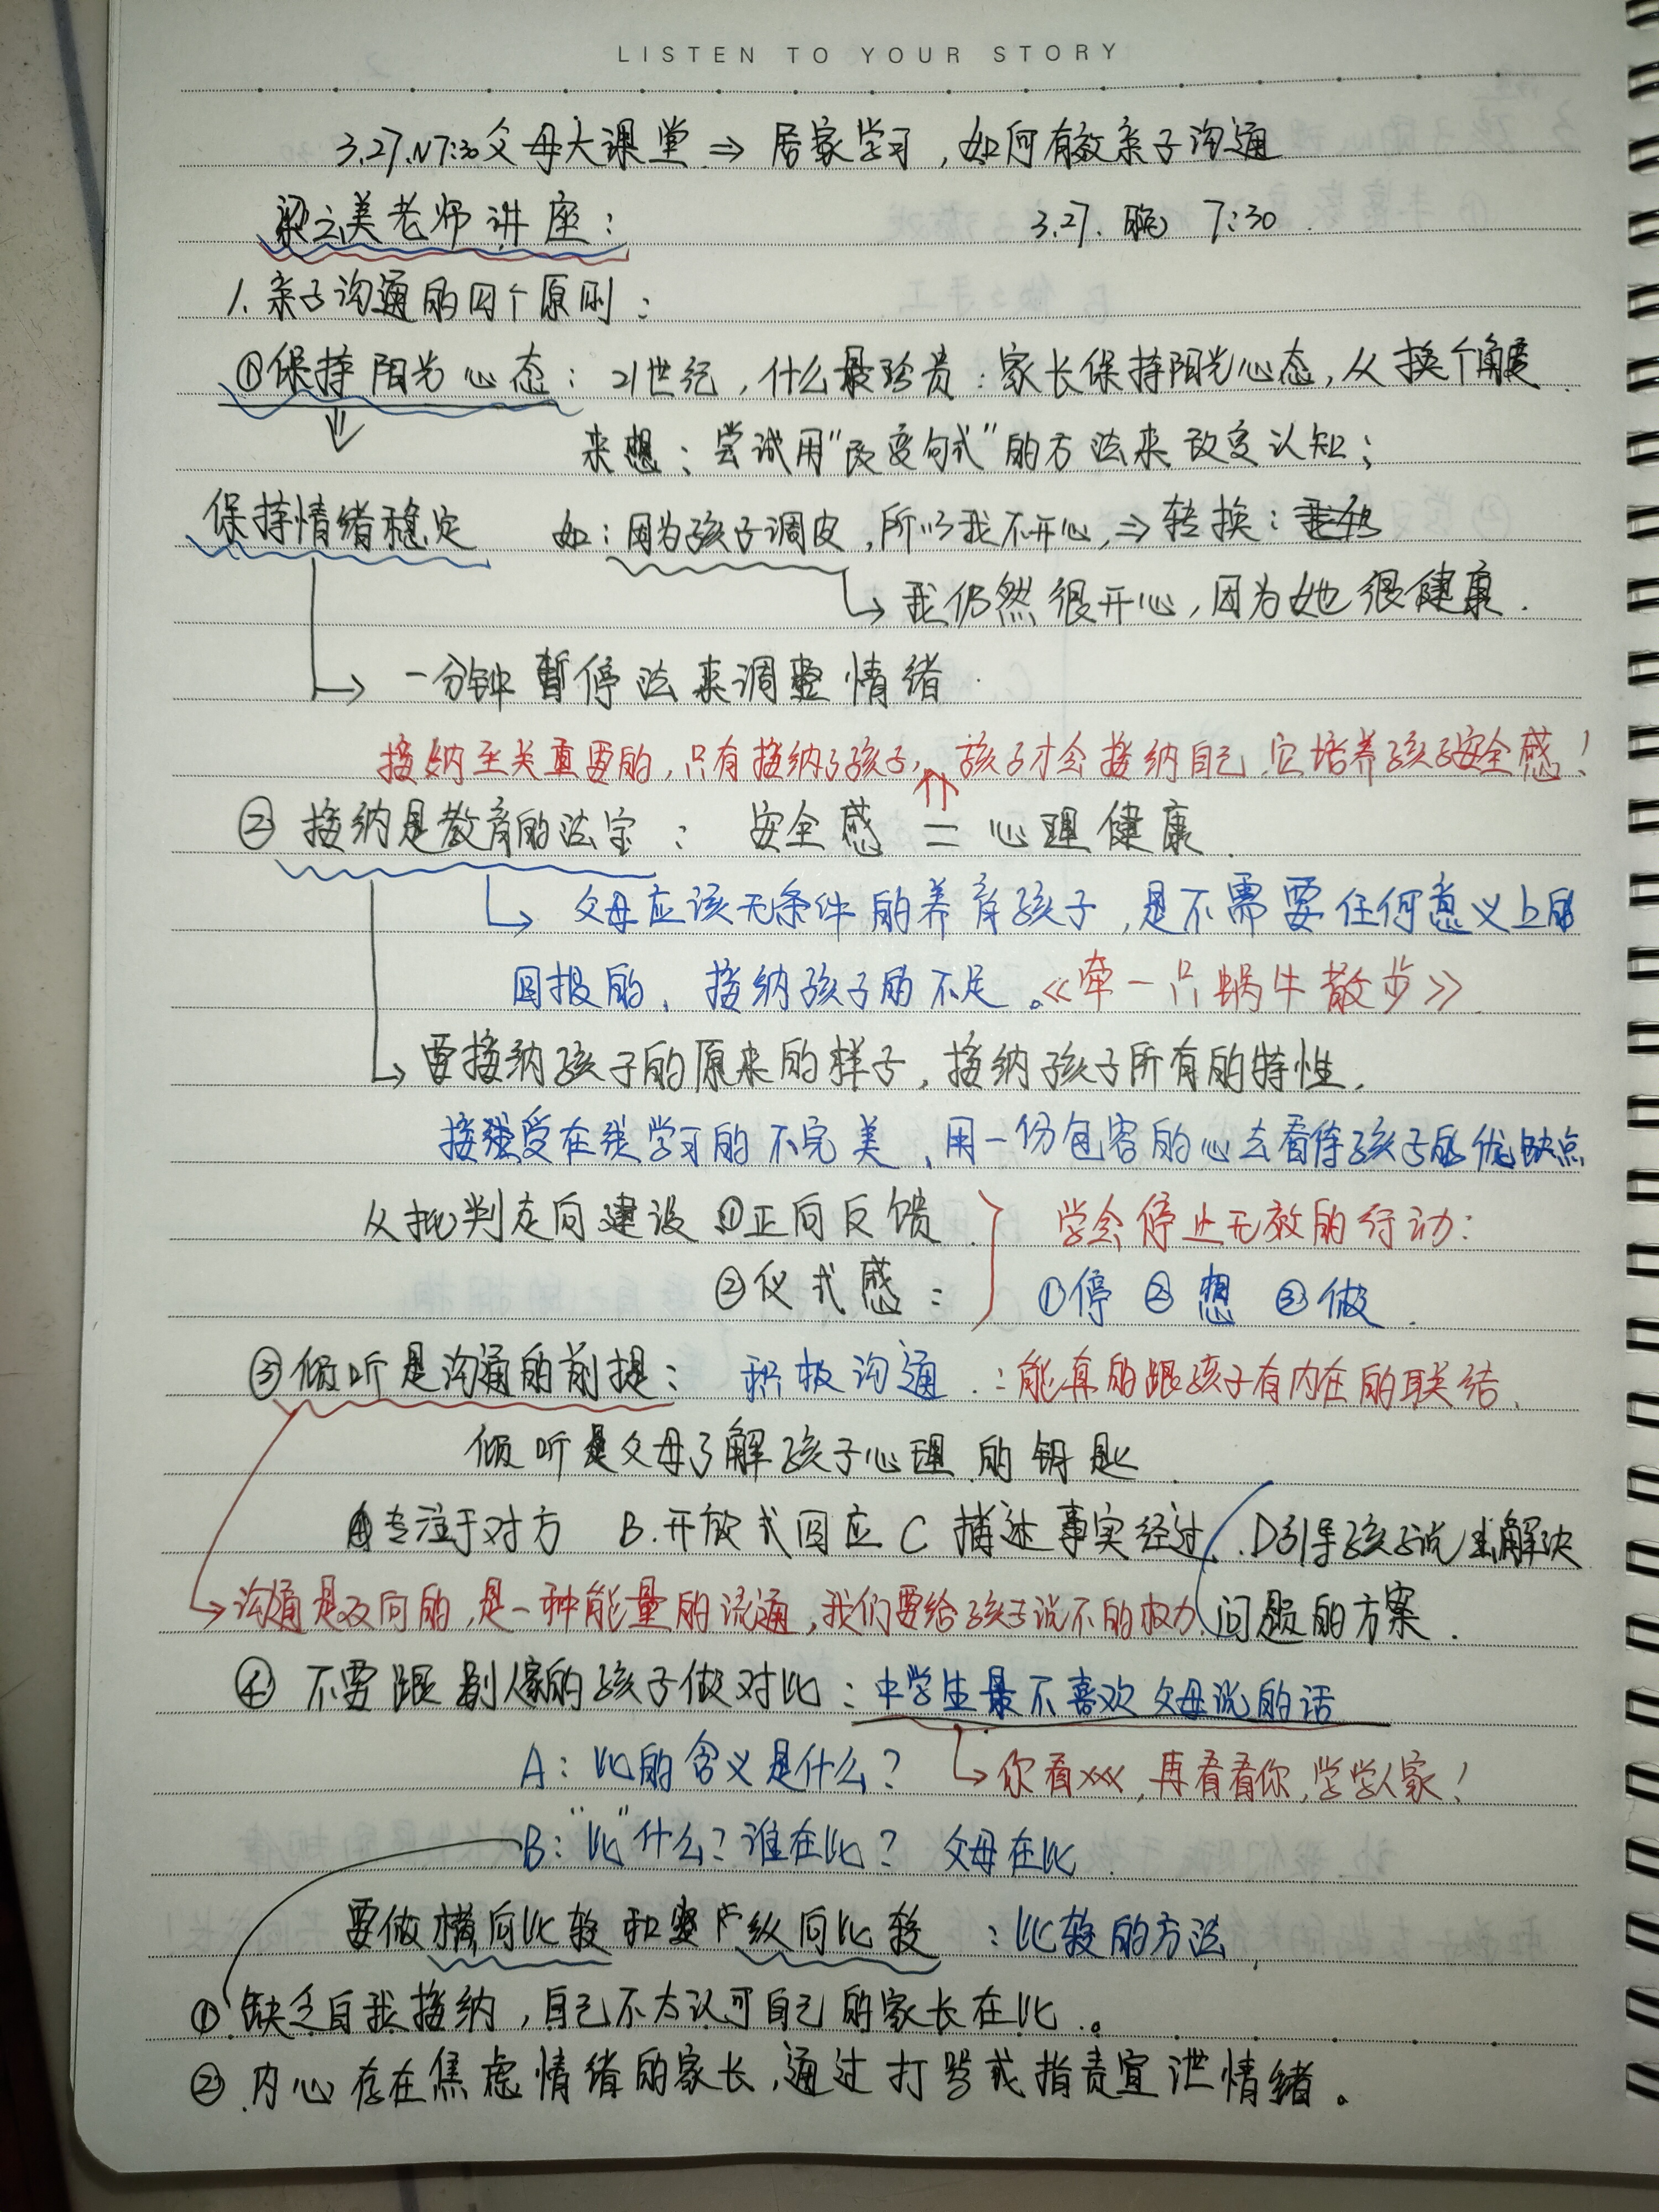 LISTEN TO YOUR STORY
3.27.N7:30父母大课堂 ⇒ 居家学习,如何有效亲子沟通
梁立美老师讲座: 3.27. 晚 7:30
1.亲子沟通的四个原则:
①保持阳光心态: 21世纪,什么最珍贵:家长保持阳光心态,从换个角度
来想:尝试用"改变句式"的方法来改变认知;
保持情绪稳定 如:因为孩子调皮,所以我不开心,⇒转换:
→我仍然很开心,因为她很健康.
→一分钟暂停法来调整情绪
接纳至关重要的,只有接纳了孩子,孩子才会接纳自己.它培养孩子安全感!
②接纳是教育的法宝: 安全感 = 心理健康.
→父母应该无条件的养育孩子,是不需要任何意义上的
回报的、接纳孩子的不足。《牵一只蜗牛散步》
→要接纳孩子的原来的样子,接纳孩子所有的特性.
接受在线学习的不完美、用一份包容的心去看待孩子的优缺点
从批判走向建设 ①正向反馈 学会停止无效的行动:
②仪式感: ①停 ②想 ③做.
③倾听是沟通的前提: 积极沟通.:能真的跟孩子有内在的联结、
倾听是父母了解孩子心理的钥匙.
A专注于对方 B.开放式回应 C 描述事实经过. D引导孩子说出解决
→沟通是双向的,是一种能量的流通,我们要给孩子说不的权力. 问题的方案.
④ 不要跟别人家的孩子做对比:中学生最不喜欢父母说的话
A:比的含义是什么? →你看xxx,再看看你,学学人家!
B:"比"什么?谁在比? 父母在比.
要做横向比较和纵向比较 :比较的方法
①缺乏自我接纳,自己不太认可自己的家长在比.。
②内心存在焦虑情绪的家长,通过打骂或指责宣泄情绪。